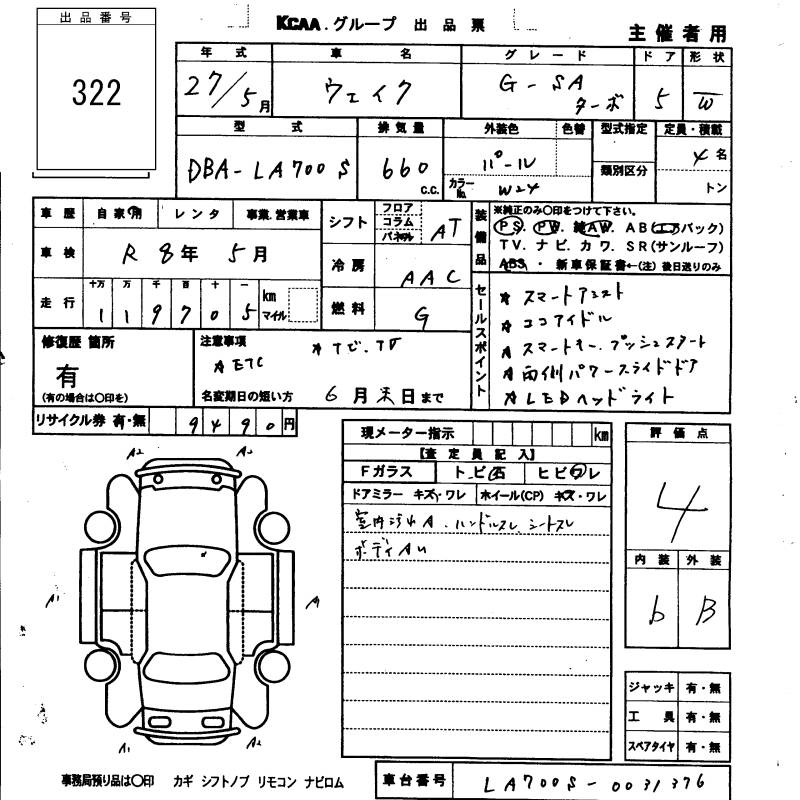 出品番号
322
KCAA.グループ 出品票
主催者用
年式 車名 グレード ドア 形状
27/5月 ウェイク G-SAターボ 5 W
型式 排気量 外装色 色替 型式指定 定員・積載
DBA-LA700S 660 c.c. パール 4名
カラーNo. W24 類別区分 トン
車歴 自家用 レンタ 事業.営業車
シフト フロア コラム パネル AT
装備品 ※純正のみ〇印をつけて下さい。
PS. PW. 純AW. AB(エアバック)
TV. ナビ. カワ. SR(サンルーフ)
ABS ・ 新車保証書←(注)後日送りのみ
車検 R 8年 5月
冷房 AAC
走行 十万 万 千 百 十 一
119705 km マイル
燃料 G
セールスポイント
★ スマートアシスト
★ エコアイドル
★ スマートキー.プッシュスタート
★ 両側パワースライドドア
★ LEDヘッドライト
修復歴 箇所
有
(有の場合は〇印を)
注意事項 ★ナビ.TV
★ETC
名変期日の短い方 6月末日まで
リサイクル券 有・無 9490円
現メーター指示 km
【査定員記入】
Fガラス トビ石 ヒビワレ
ドアミラー キズ・ワレ ホイール(CP) キズ・ワレ
室内汚れA.ハンドルスレ.シートスレ
ボディAU
評価点
4
内装 外装
b B
A2 A2
A1 A1
A1 A2
ジャッキ 有・無
工具 有・無
スペアタイヤ 有・無
事務局預り品は〇印 カギ シフトノブ リモコン ナビロム
車台番号 LA700S-0031376